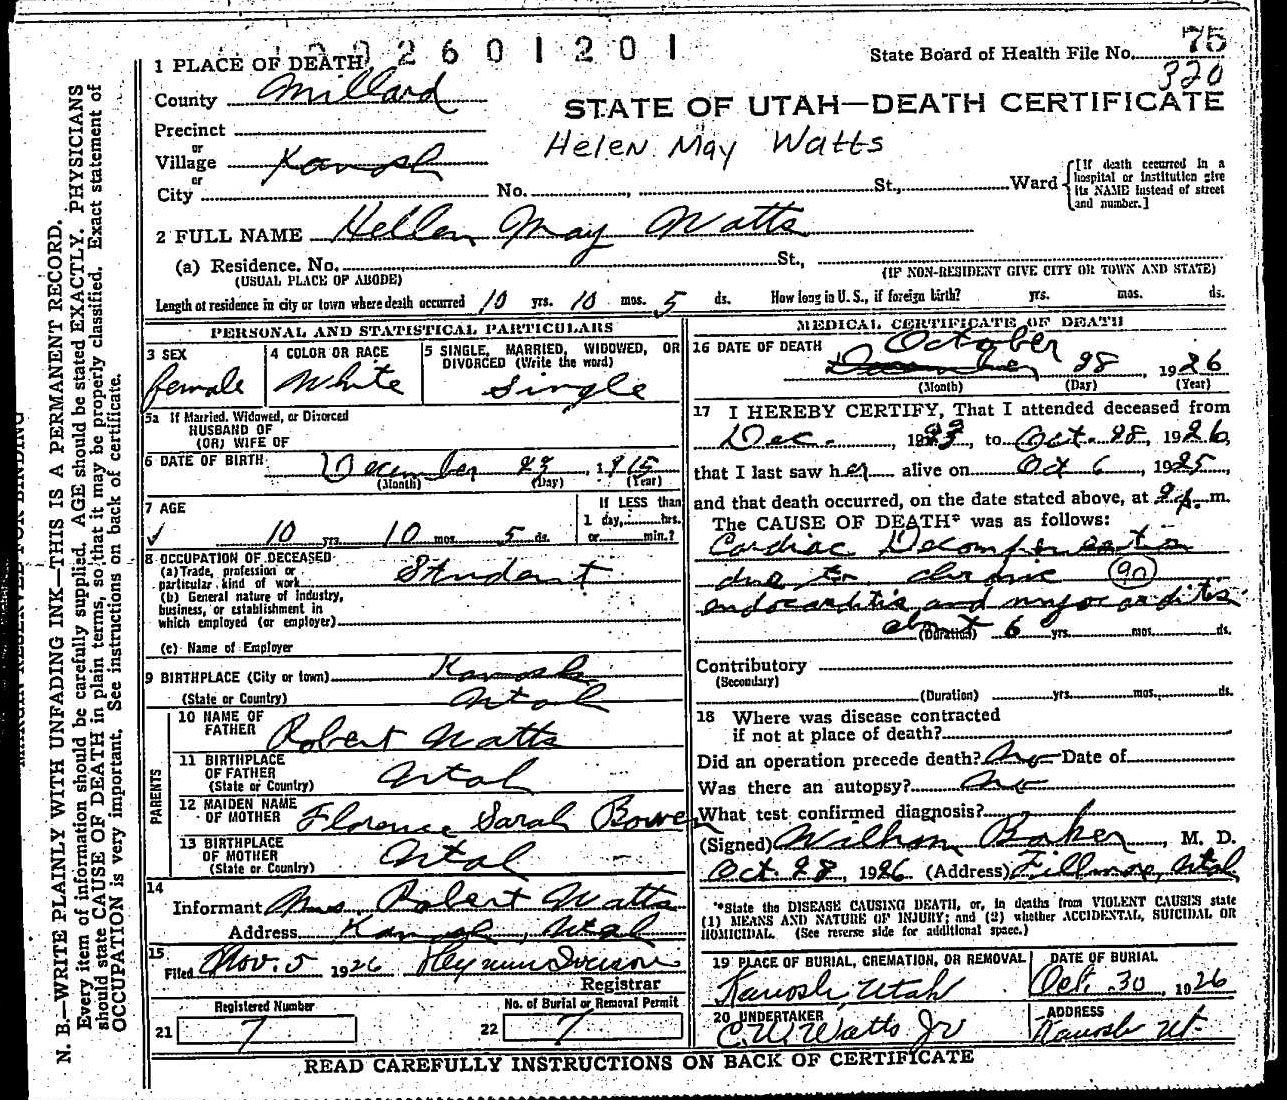 2601201
State Board of Health File No. 75
320
1 PLACE OF DEATH
County Millard
STATE OF UTAH—DEATH CERTIFICATE
Precinct
or
Helen May Watts
Village Kanosh
or
City No. St., Ward
[If death occurred in a
hospital or institution give
its NAME instead of street
and number.]
2 FULL NAME Hellen May Watts
(a) Residence. No. St.,
(USUAL PLACE OF ABODE) (IF NON-RESIDENT GIVE CITY OR TOWN AND STATE)
Length of residence in city or town where death occurred 10 yrs. 10 mos. 5 ds. How long in U.S., if foreign birth? yrs. mos. ds.
PERSONAL AND STATISTICAL PARTICULARS
3 SEX
female
4 COLOR OR RACE
White
5 SINGLE, MARRIED, WIDOWED, OR
DIVORCED (Write the word)
Single
5a If Married, Widowed, or Divorced
HUSBAND OF
(OR) WIFE OF
6 DATE OF BIRTH December 23, 1915
(Month) (Day) (Year)
7 AGE
10 yrs. 10 mos. 5 ds.
If LESS than
1 day, hrs.
or min.?
8 OCCUPATION OF DECEASED
(a) Trade, profession or
particular kind of work Student
(b) General nature of industry,
business, or establishment in
which employed (or employer)
(c) Name of Employer
9 BIRTHPLACE (City or town) Kanosh
(State or Country) Utah
PARENTS
10 NAME OF
FATHER Robert Watts
11 BIRTHPLACE
OF FATHER
(State or Country) Utah
12 MAIDEN NAME
OF MOTHER Florence Sarah Bowen
13 BIRTHPLACE
OF MOTHER
(State or Country) Utah
14
Informant Mrs. Robert Watts
Address Kanosh, Utah
15
Filed Nov. 5 1926
Registrar
Registered Number No. of Burial or Removal Permit
21 7 22 7
MEDICAL CERTIFICATE OF DEATH
16 DATE OF DEATH October
December 28, 1926
(Month) (Day) (Year)
17 I HEREBY CERTIFY, That I attended deceased from
Dec. , 1923, to Oct. 28, 1926,
that I last saw her alive on Oct 6, 1925,
and that death occurred, on the date stated above, at 9 p. m.
The CAUSE OF DEATH* was as follows:
Cardiac Decompensation
due to chronic 90
endocarditis and myocarditis
about (Duration) 6 yrs. mos. ds.
Contributory
(Secondary)
(Duration) yrs. mos. ds.
18 Where was disease contracted
if not at place of death?
Did an operation precede death? No Date of
Was there an autopsy? No
What test confirmed diagnosis?
(Signed) Baker, M. D.
Oct. 28, 1926 (Address) Fillmore, Utah
*State the DISEASE CAUSING DEATH, or, in deaths from VIOLENT CAUSES state
(1) MEANS AND NATURE OF INJURY; and (2) whether ACCIDENTAL, SUICIDAL OR
HOMICIDAL. (See reverse side for additional space.)
19 PLACE OF BURIAL, CREMATION, OR REMOVAL
Kanosh, Utah
DATE OF BURIAL
Oct. 30, 1926
20 UNDERTAKER
C.W. Watts Jr
ADDRESS
Kanosh Ut.
READ CAREFULLY INSTRUCTIONS ON BACK OF CERTIFICATE
MARGIN RESERVED FOR BINDING
N. B.—WRITE PLAINLY WITH UNFADING INK—THIS IS A PERMANENT RECORD.
Every item of information should be carefully supplied. AGE should be stated EXACTLY. PHYSICIANS
should state CAUSE OF DEATH in plain terms, so that it may be properly classified. Exact statement of
OCCUPATION is very important. See instructions on back of certificate.